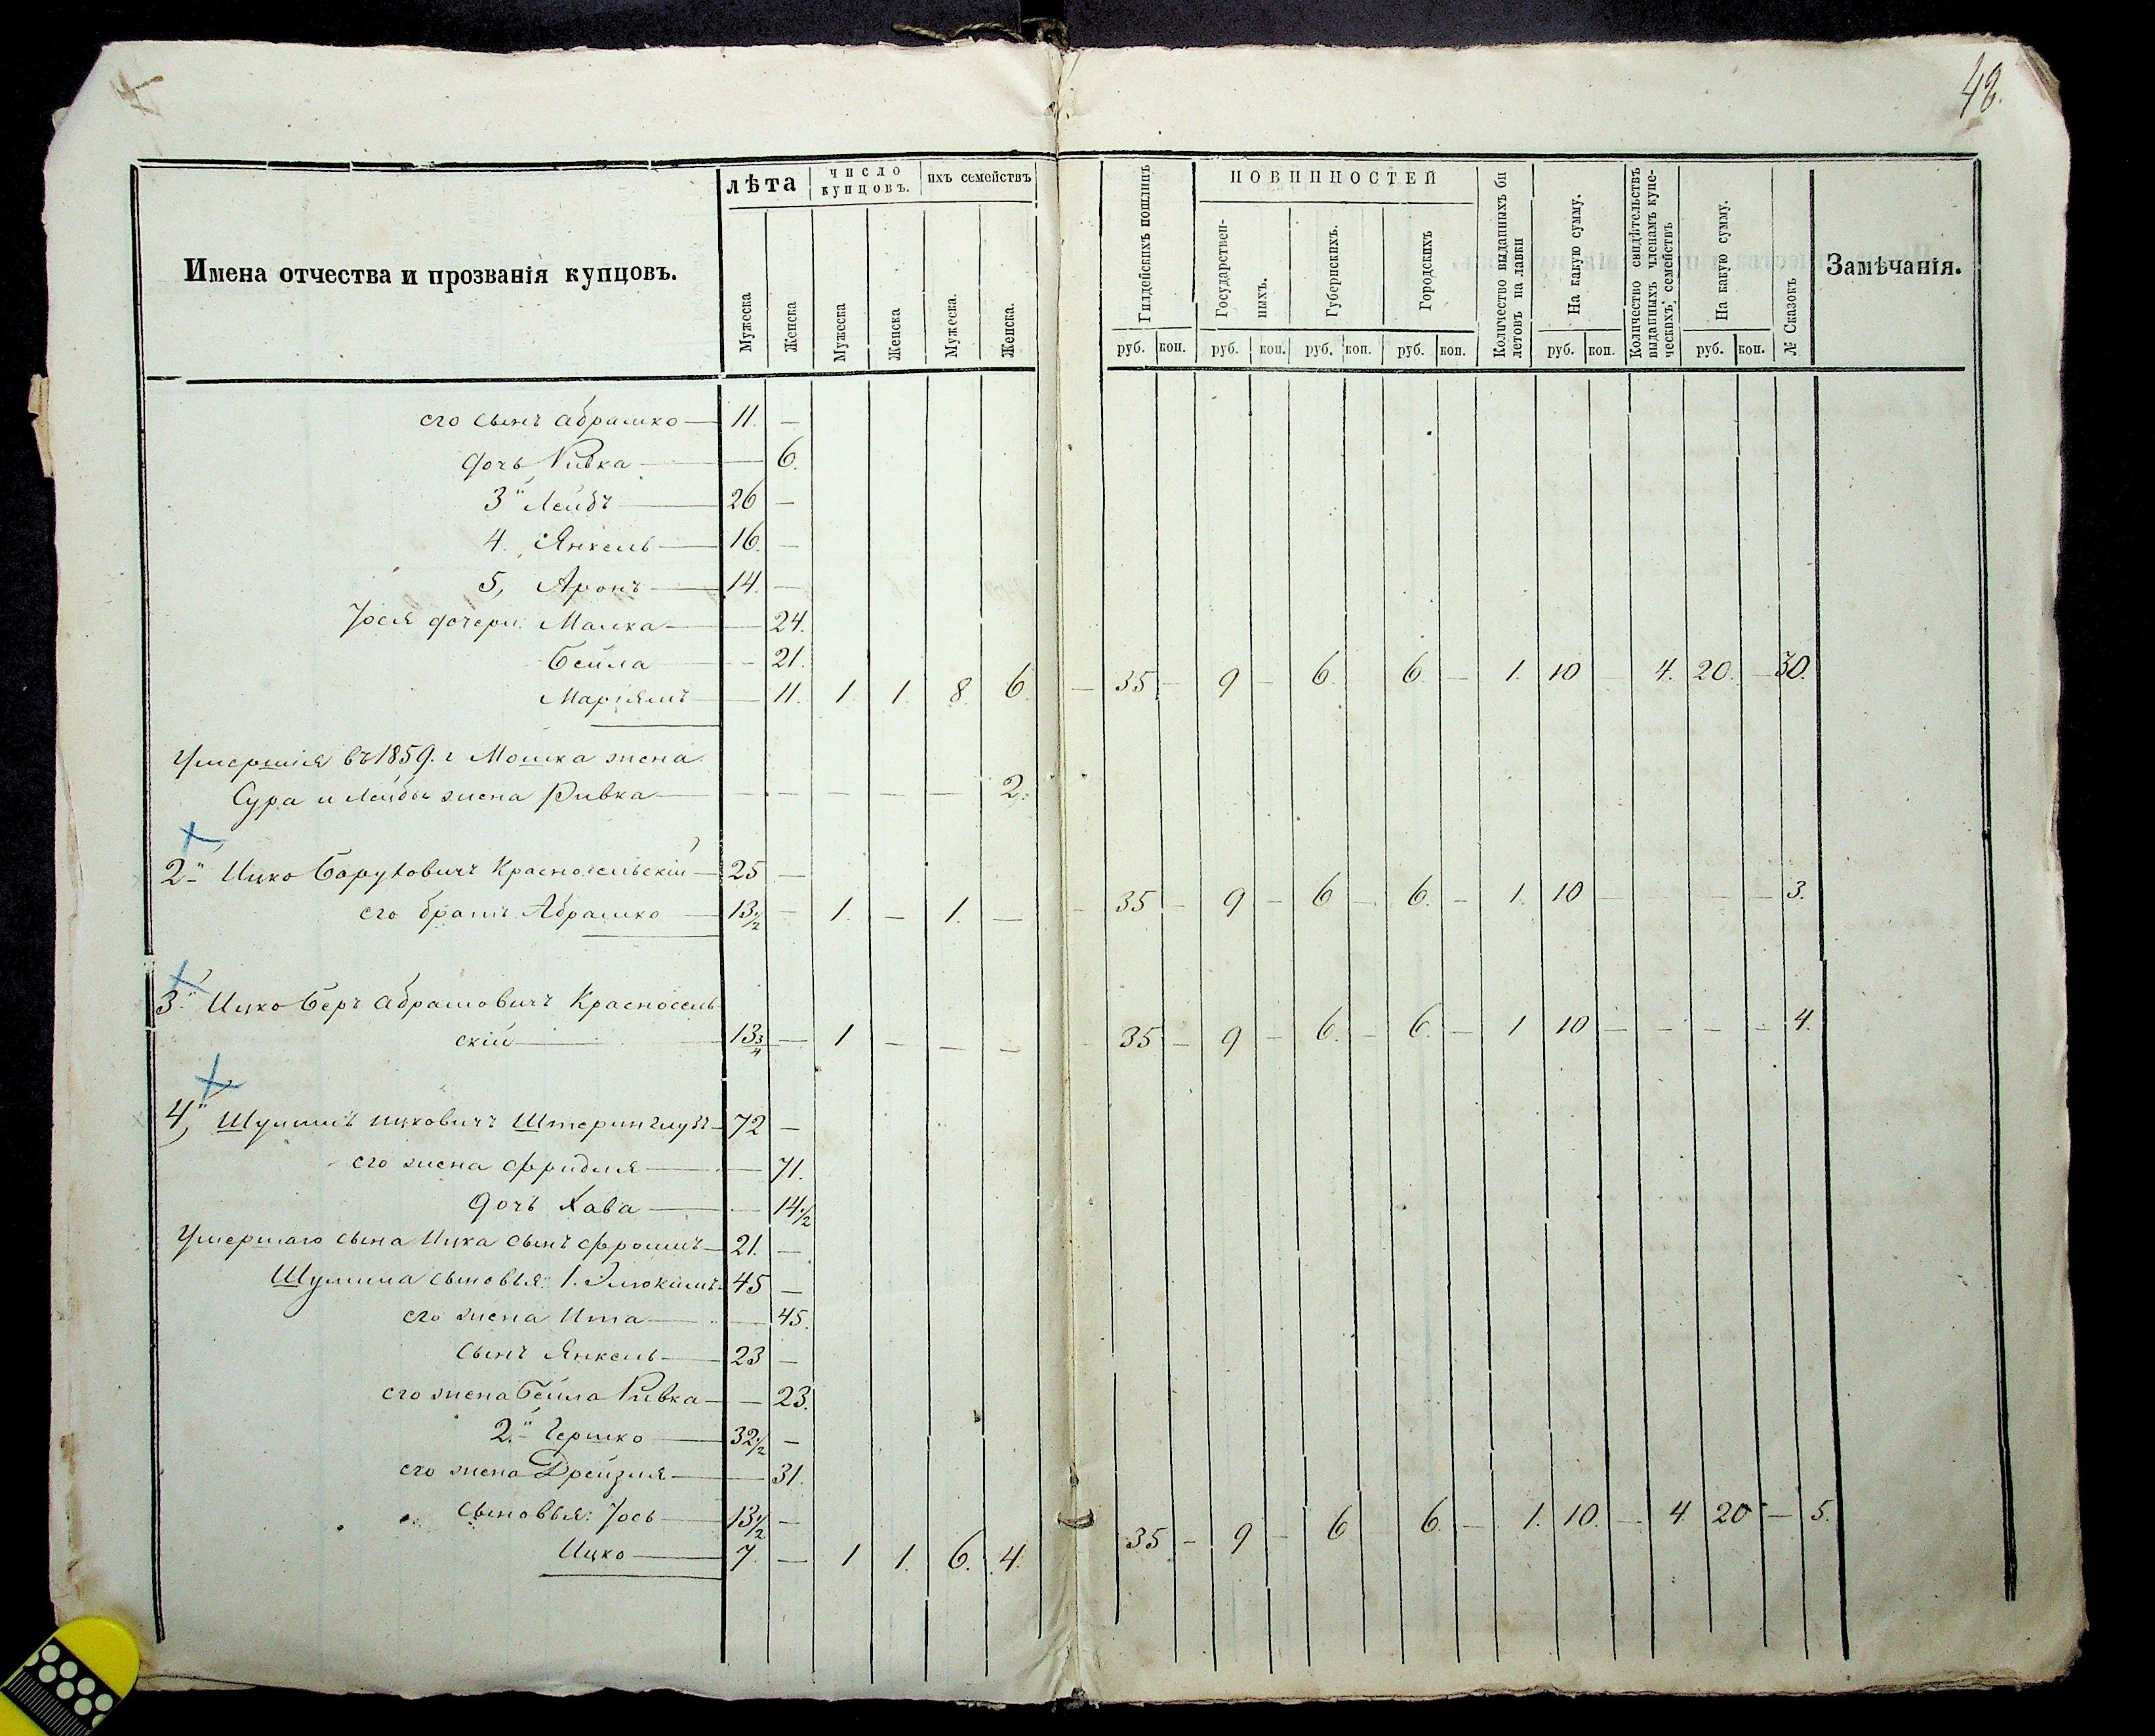 48.
Имена отчества и прозванія купцовъ.
лѣта
число купцовъ.
ихъ семействъ
Мужеска
Женска
Мужеска
Женска
Мужеска.
Женска.
Гилдейскихъ пошлинъ
ПОВИННОСТЕЙ
Государствен-
ныхъ.
Губернскихъ.
Городскихъ
Количество выданныхъ би
летовъ на лавки
На какую сумму.
Количество свидѣтельствъ
выданныхъ членамъ купе-
ческихъ семействъ
На какую сумму.
№ Сказокъ
Замѣчанія.
руб. коп. руб. коп. руб. коп. руб. коп. руб. коп. руб. коп.
его сынъ Абрашко — 11. —
дочь Ривка — — 6.
3й Лейбъ — 26 —
4. Янкель — 16. —
5, Аронъ — 14. —
Іося дочери: Малка — — 24.
Бейла — — 21.
Маріямъ — — 11. 1. 1. 8. 6. — 35 — 9 — 6. 6. — 1. 10 — 4. 20. — 30.
Умершія въ 1859. г Мошка жена
Сура и Лейбы жена Ривка — — — — — — 2.
2й Ицко Баруховичъ Красносельскій — 25 —
его братъ Абрашко — 13½ — 1. — 1. — — 35 — 9 — 6 — 6. — 1. 10 — — — — 3.
3й Ицко Беръ Абрамовичъ Красносель
скій — 13¾ — 1 — — — — 35 — 9 — 6. — 6. — 1 10 — — — — 4.
4й, Шулимъ Ицковичъ — 72 —
его жена Фридля — — 71.
дочь Хава — — 14½
Умершаго сына Ицка сынъ Фроимъ — 21. —
Шулима сыновья: 1. Элюкимъ — 45 —
его жена Ита — — 45.
сынъ Янкель — 23 —
его жена Бейла Ривка — — 23.
2й Гершко — 32½ —
его жена Дрейзля — — 31.
сыновья: Іось — 13½ —
Ицко — 7. — 1 1. 6. 4. 35 — 9 — 6 6. — 1. 10. — 4 20 — 5.